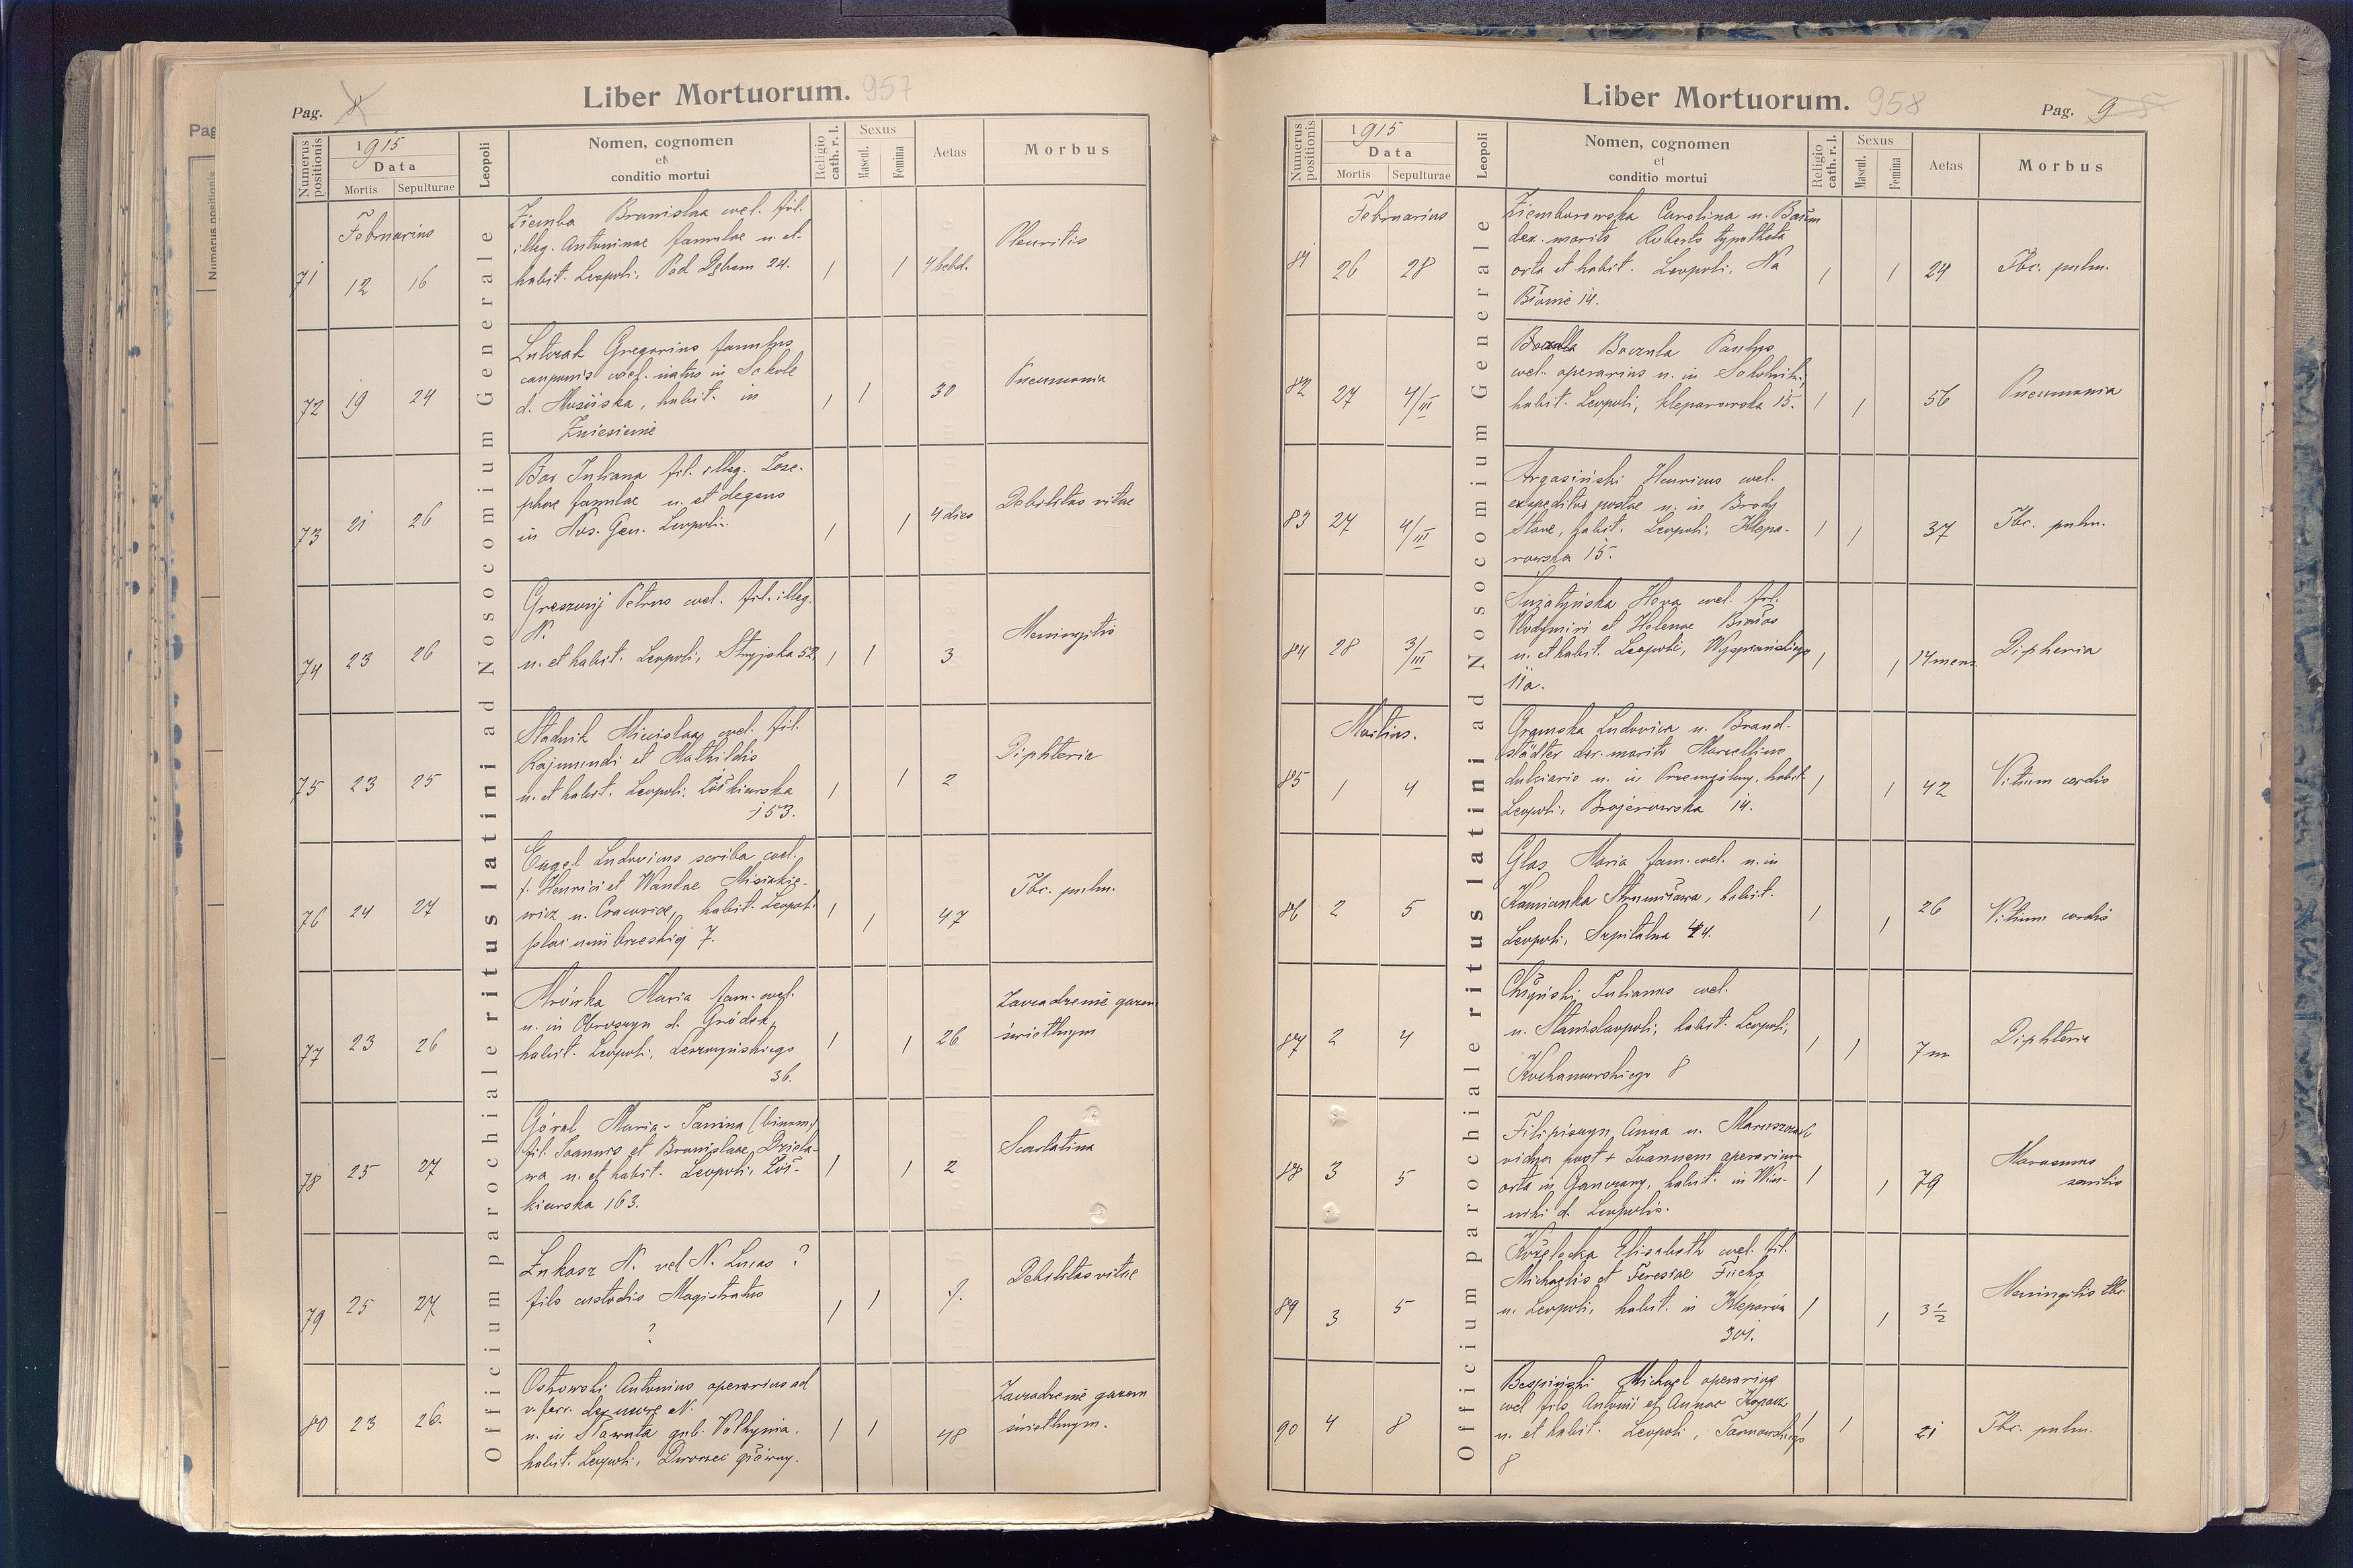 Liber Mortuorum. 957
Pag. 8
Numerus positionis
1915
Data
Mortis
Sepulturae
Leopoli
Nomen, cognomen
et
conditio mortui
Religio
cath. r. l.
Sexus
Mascul.
Femina
Aetas
Morbus
Officium parochiale ritus latini ad Nosocomium Generale
Februarius
71 12 16
Ziemba Bronislaa coel. fil.
illeg. Antoninae famulae n. et
habit. Leopoli, Pod Dębem 24.
1 1 4 hebd. Pleuritis
72 19 24
Gregorius famulus
cauponis coel. natus in Sokole
d. Mościska, habit. in
Zniesienie
1 1 30 Pneumonia
73 21 26
Bar Juliana fil. illeg. Jose-
phae famulae n. et degens
in Nos. Gen. Leopoli.
1 1 4 dies Debilitas vitae
74 23 26
Petrus coel. fil. illeg.
N.
n. et habit. Leopoli, Stryjska 52.
1 1 3 Meningitis
75 23 25
Stadnik coel. fil.
Rajmundi et Mathildis
n. et habit. Leopoli, Żółkiewska
153.
1 1 2 Diphteria
76 24 27
Engel Ludovicus scriba coel.
f. Henrici et Wandae Misiakie-
wicz n. Cracoviae, habit. Leopoli
7.
1 1 47 Tbc. pulm.
77 23 26
Mrówka Maria fam. coel.
n. in Obroszyn d. Gródek,
habit. Leopoli,
36.
1 1 26 Zaczadzenie gazem
świetlnym
78 25 27
Góral Maria-Janina (binom.)
fil. Joannis et Bronislaae Dziela-
wa n. et habit. Leopoli, Żół-
kiewska 163.
1 1 2 Scarlatina
79 25 27
Łukasz N. vel N. Lucas ?
filo custodis Magistratus
?
1 1 ./. Debilitas vitae
80 23 26.
Ostrowski Antonius operarius ad
v. ferr. N.
n. in Sławuta gub. Volhynia,
habit. Leopoli, Dworzec główny.
1 1 48 Zaczadzenie gazem
świetlnym.
Liber Mortuorum. 958
Pag. 9
Numerus positionis
1915
Data
Mortis
Sepulturae
Leopoli
Nomen, cognomen
et
conditio mortui
Religio
cath. r. l.
Sexus
Mascul.
Femina
Aetas
Morbus
Officium parochiale ritus latini ad Nosocomium Generale
Februarius
81 26 28
Ziemborowska Carolina n. Baum
der. marito Roberto typotheta
orta et habit. Leopoli, Na
Błonie 14.
1 1 24 Tbc. pulm.
82 27 4/III
Boczula Paulus
coel. operarius n. in Sokolniki,
habit. Leopoli, Kleparowska 15.
1 1 56 Pneumonia
83 27 4/III
Argasiński Henricus coel.
expeditor postae n. in Brody
Stare, habit. Leopoli, Klepa-
rowska 15.
1 1 37 Tbc. pulm.
84 28 3/III
Hova coel. fil.
Vlodymiri et Helenae
n. et habit. Leopoli, Wyspiańskiego
11a.
1 1 14 mens. Dipheria
Martius.
85 1 4
Gramska Ludovica n. Brand-
städter der. marito Marcellino
dulciario n. in Przemyślany, habit.
Leopoli, Brajerowska 14.
1 1 42 Vitium cordis
86 2 5
Glas Maria fam. coel. n. in
Kamionka Strumiłowa, habit.
Leopoli, Szpitalna 44.
1 1 26 Vitium cordis
87 2 4
Julianus coel.
n. Stanislaopoli, habit. Leopoli,
Kochanowskiego 8
1 1 7 m Diphteria
88 3 5
Filipiszyn Anna n.
vidua post + Joannem operarium
orta in Ganczary, habit. in Win-
niki d. Leopolis.
1 1 79 Marasmus
senilis
89 3 5
Elisabeth coel. fil.
Michaelis et Teresiae Fuchs
n. Leopoli, habit. in Kleparów
301.
1 1 3 1/2 Meningitis tbc.
90 4 8
Michael operarius
coel. fils Antonii et Annae Kopacz
n. et habit. Leopoli, Tarnowskiego
8
1 1 21 Tbc. pulm.